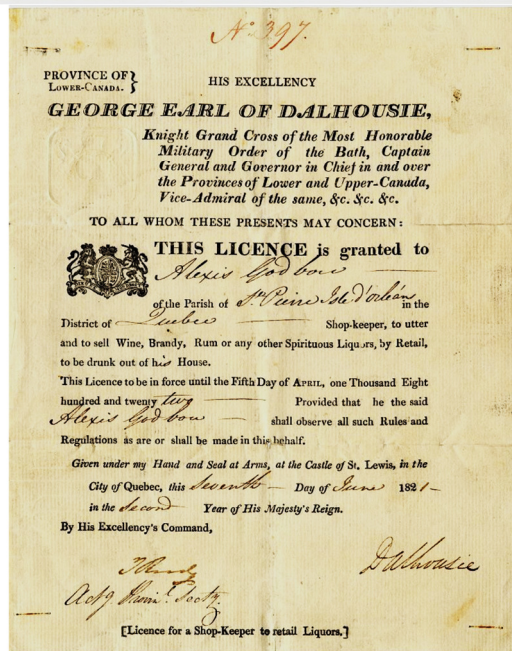 No. 397.
PROVINCE OF }
LOWER-CANADA.
HIS EXCELLENCY
GEORGE EARL OF DALHOUSIE,
Knight Grand Cross of the Most Honorable
Military Order of the Bath, Captain
General and Governor in Chief in and over
the Provinces of Lower and Upper-Canada,
Vice-Admiral of the same, &c. &c. &c.
TO ALL WHOM THESE PRESENTS MAY CONCERN:
THIS LICENCE is granted to
Alexis Godbou
of the Parish of St. Pierre Isle d'orléan in the
District of Quebec Shop-keeper, to utter
and to sell Wine, Brandy, Rum or any other Spirituous Liquors, by Retail,
to be drunk out of his House.
This Licence to be in force until the Fifth Day of APRIL, one Thousand Eight
hundred and twenty two Provided that he the said
Alexis Godbou shall observe all such Rules and
Regulations as are or shall be made in this behalf.
Given under my Hand and Seal at Arms, at the Castle of St. Lewis, in the
City of Quebec, this Seventh Day of June 1821
in the Second Year of His Majesty's Reign.
By His Excellency's Command,
Dalhousie
Actg
[Licence for a Shop-Keeper to retail Liquors.]